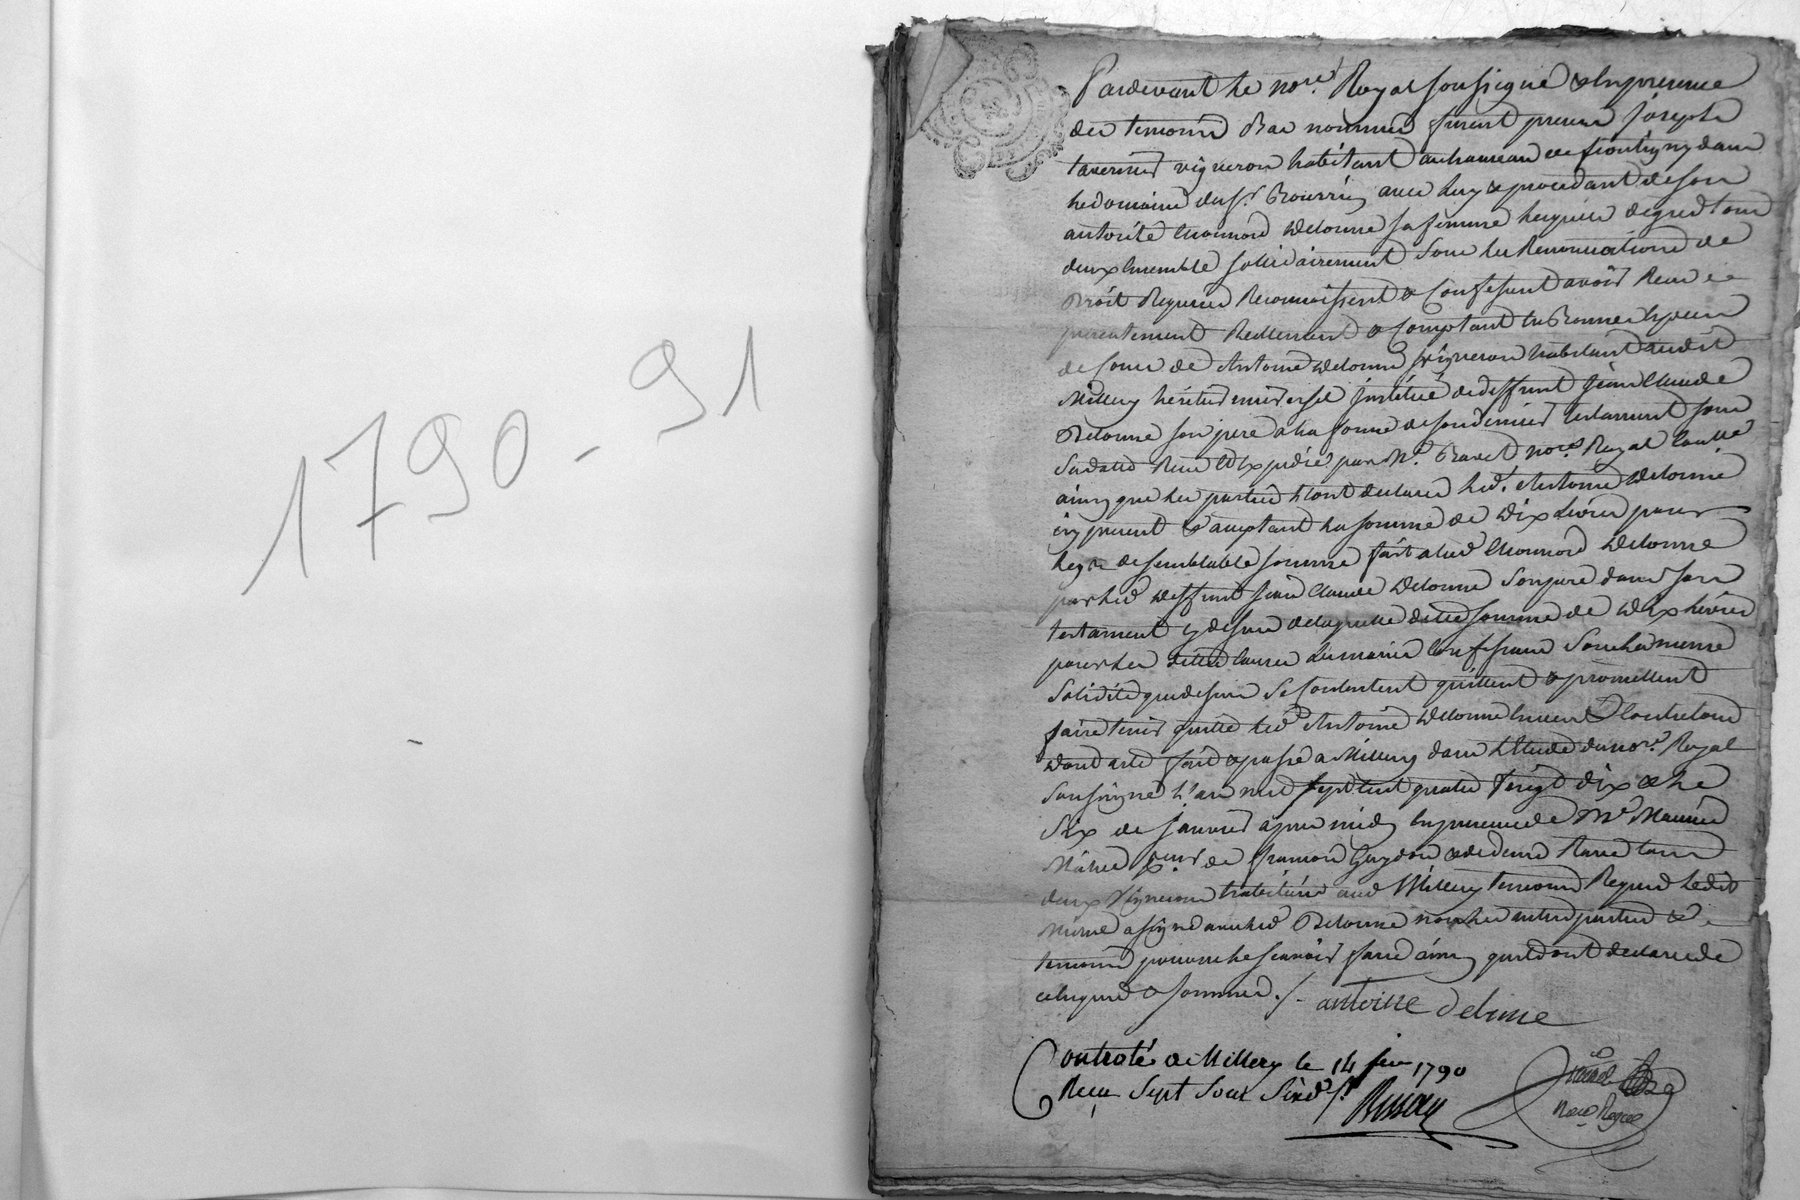 1790 - 91
Pardevant le nore. Royal soussigné & En presence
des temoins Bas nommés furent present Joseph
tavernier vigneron habitant au hameau de dans
le domaine du sr. avec luy & procedant de son
autorité Delorme sa femme lesquels de gred tous
deux Ensemble solidairement sous les Renonciations de
Droit Requises Reconnoissent & Confessent avoir Reçu
presentement Reellement & Comptant En Bonnes Especes
de cours de Antoine Delorme vigneron habitant audit
Millery héritier universel institué de deffunt Jean Claude
Delorme son pere a la forme de son dernier testament sous
sa datte Reçu & Expedié par Me. nore. Royal
ainsy que les parties l'ont declaré led. Antoine Delorme
icy present & acceptant la somme de Dix Livres pour
legs de semblable somme fait a lad. Delorme
par led. deffunt Jean Claude Delorme son pere dans son
testament de laquelle ditte somme de Dix livres
pour les dittes causes les mariés Confessans sous la meme
solidité que dessus se Contentent quittent & promettent
faire tenir quitte led. Antoine Delorme Envers & Contre tous
Dont acte fait & passé a Millery dans l'Etude du nore. Royal
soussigné l'an mil sept cent quatre vingt dix & le
six de Janvier apres midy En presence de
de Guydon & de tous
deux vignerons habitans aud. Millery temoins Requis ledit
a signé avec led. Delorme non les autres parties &
temoins pour ne le sçavoir faire ainsy qu'ils ont declaré de
ce Enquis & sommés ./.
antoine delorme
Controlé a Millery le 14 jer 1790
Reçu Sept Sous Six drs.
nore Royal